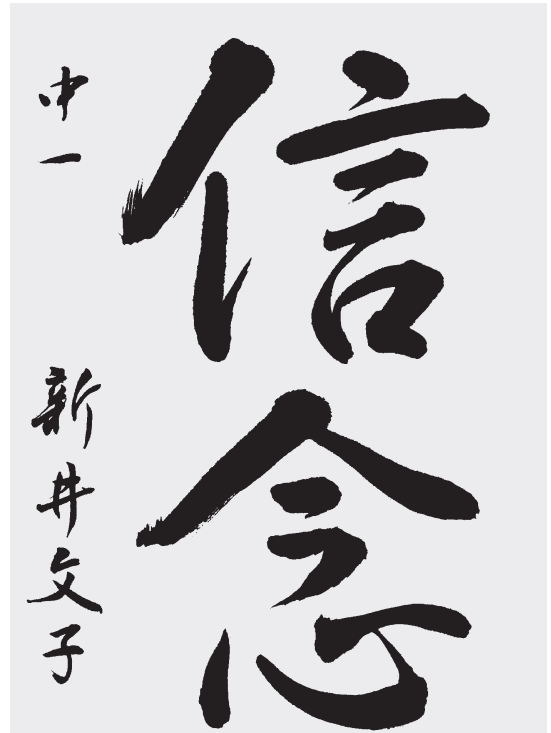 信念
中一 新井文子